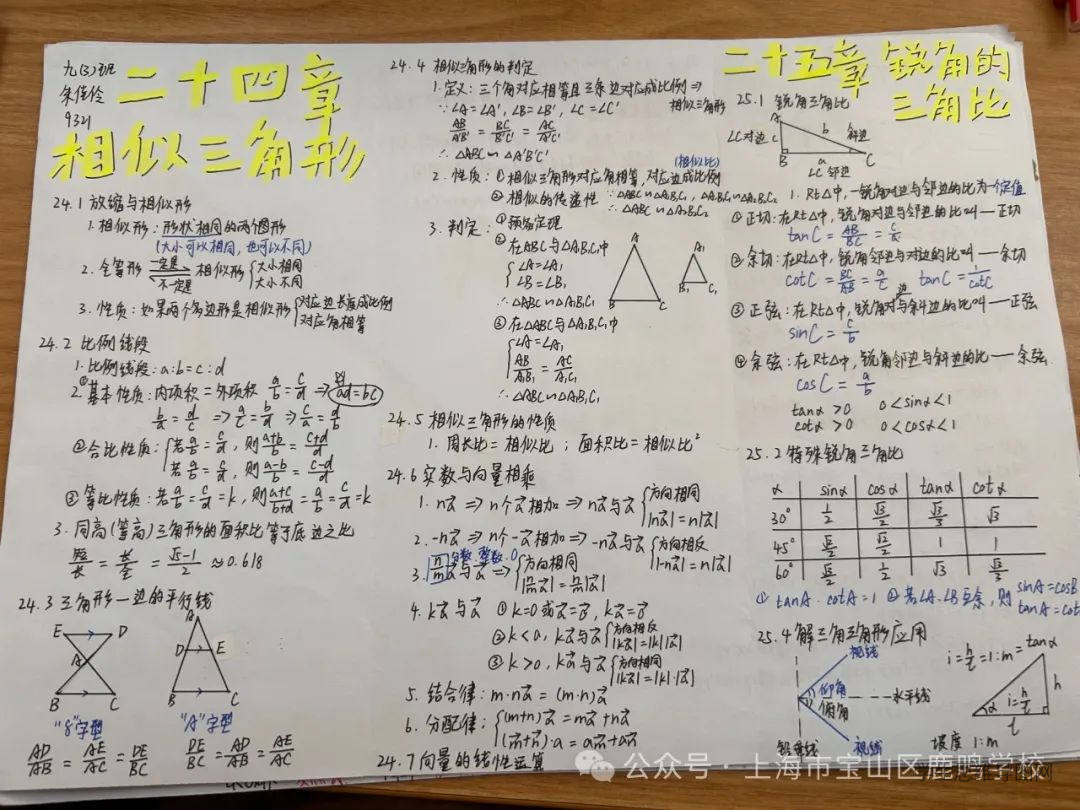 九(3)班
朱佳伶
9321
二十四章
相似三角形
24.1 放缩与相似形
1. 相似形：形状相同的两个图形
(大小可以相同,也可以不同)
2. 全等形 一定是 不一定是 相似形 { 大小相同 大小不同
3. 性质：如果两个多边形是相似形 { 对应边长度成比例 对应角相等
24.2 比例线段
1. 比例线段：a:b=c:d
2. ①基本性质：内项积=外项积 a/b=c/d ⇒ ad=bc
b/a=d/c ⇒ a/c=b/d ⇒ c/a=d/b
②合比性质：{ 若a/b=c/d，则(a+b)/b=(c+d)/d
若a/b=c/d，则(a-b)/b=(c-d)/d
③等比性质：若a/b=c/d=k，则(a+c)/(b+d)=a/b=c/d=k
3. 同高(等高)三角形的面积比等于底边之比
短/长=长/全=(√5-1)/2≈0.618
24.3 三角形一边的平行线
E D A B C
A D E B C
"8"字型 "A"字型
AD/AB=AE/AC=DE/BC DE/BC=AD/AB=AE/AC
24.4 相似三角形的判定
1. 定义：三个角对应相等且三条边对应成比例 ⇒
相似三角形
∵∠A=∠A', ∠B=∠B', ∠C=∠C'
AB/A'B'=BC/B'C'=AC/A'C'
∴△ABC∽△A'B'C'
(相似比)
2. 性质：①相似三角形对应角相等,对应边成比例
②相似的传递性 ∵△ABC∽△A₁B₁C₁, △A₁B₁C₁∽△A₂B₂C₂
∴△ABC∽△A₂B₂C₂
3. 判定：①预备定理
②在ABC与△A₁B₁C₁中
{ ∠A=∠A₁
∠B=∠B₁
∴△ABC∽△A₁B₁C₁
A B C A₁ B₁ C₁
③在△ABC与△A₁B₁C₁中
{ ∠A=∠A₁
AB/A₁B₁=AC/A₁C₁
∴△ABC∽△A₁B₁C₁
24.5 相似三角形的性质
1. 周长比=相似比；面积比=相似比²
24.6 实数与向量相乘
1. na⃗ ⇒ n个a⃗相加 ⇒ na⃗与a⃗ { 方向相同 |na⃗|=n|a⃗|
2. -na⃗ ⇒ n个-a⃗相加 ⇒ -na⃗与a⃗ { 方向相反 |-na⃗|=n|a⃗|
分数,整数,0
3. n/m a⃗与a⃗ ⇒ { 方向相同 |n/m a⃗|=n/m|a⃗|
4. ka⃗与a⃗ ①k=0或a⃗=0⃗, ka⃗=0⃗
②k<0, ka⃗与a⃗ { 方向相反 |ka⃗|=|k||a⃗|
③k>0, ka⃗与a⃗ { 方向相同 |ka⃗|=|k|·|a⃗|
5. 结合律：m·na⃗=(m·n)a⃗
6. 分配律：{ (m+n)a⃗=ma⃗+na⃗
(m⃗+n⃗)·a=am⃗+an⃗
24.7 向量的线性运算
二十五章 锐角的
三角比
25.1 锐角三角比
A B C b a
∠C对边 斜边
∠C邻边
1. Rt△中,一锐角对边与邻边的比为一个定值
①正切：在Rt△中,锐角对边与邻边的比叫—正切
tanC=AB/BC=c/a
②余切：在Rt△中,锐角邻边与对边的比叫—余切
cotC=BC/AB=a/c tanC=1/cotC
③正弦：在Rt△中,锐角对边与斜边的比叫—正弦
sinC=c/b
④余弦：在Rt△中,锐角邻边与斜边的比—余弦
cosC=a/b
tanα>0 0<sinα<1
cotα>0 0<cosα<1
25.2 特殊锐角三角比
α sinα cosα tanα cotα
30° 1/2 √3/2 √3/3 √3
45° √2/2 √2/2 1 1
60° √3/2 1/2 √3 √3/3
①tanA·cotA=1 ②若∠A、∠B互余,则 sinA=cosB
tanA=cot
25.4 解三角三角形应用
视线
仰角
水平线
俯角
铅垂线 视线
i=h/l=1:m=tanα
α i=h/l h
l
坡度 1:m
公众号·上海市宝山区鹿鸣学校